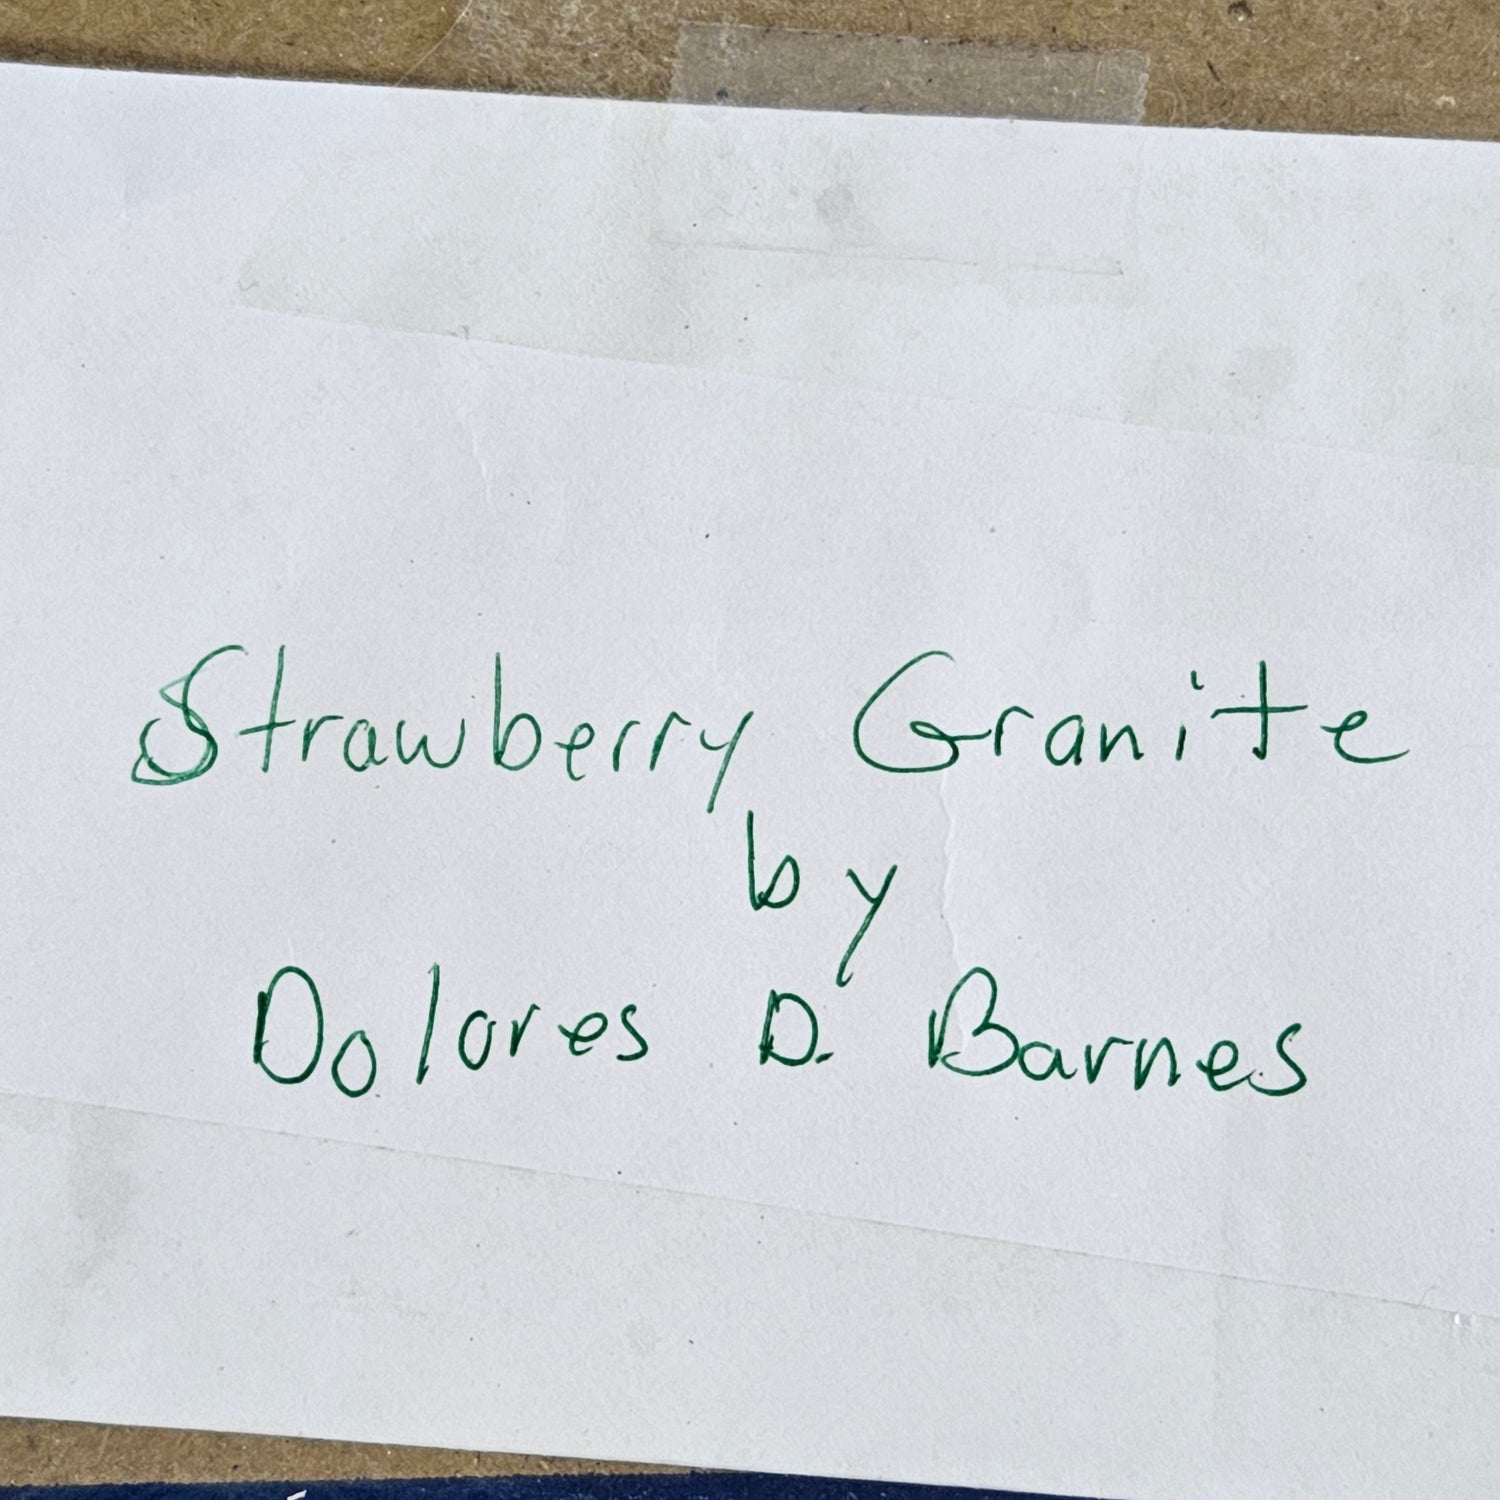 Strawberry Granite
by
Dolores D. Barnes